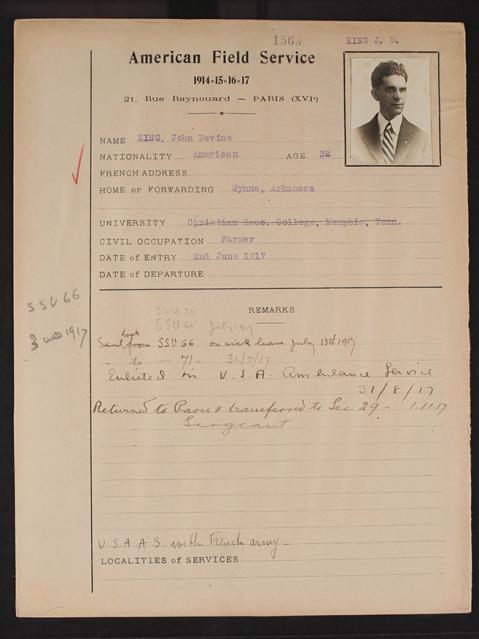 1563
KING J. D.
American Field Service
1914-15-16-17
21, Rue Raynouard — PARIS (XVIe)
NAME KING, John Devine
NATIONALITY American AGE 32
FRENCH ADDRESS
HOME OR FORWARDING Wynne, Arkansas
UNIVERSITY Christian Bros. College, Memphis, Tenn.
CIVIL OCCUPATION Farmer
DATE OF ENTRY 2nd June 1917
DATE OF DEPARTURE
SSU 66
3 1917
REMARKS
SSU 66 July 1917
back
Sent from SSU 66 on sick leave July 13th 1917
— to — 71 — 31/7/17
Enlisted in U.S.A. Ambulance Service
31/8/17
Returned to Paris & transferred to Sec 29 — 1.11.17
Sergeant
U.S.A.A.S. with French army —
LOCALITIES OF SERVICES